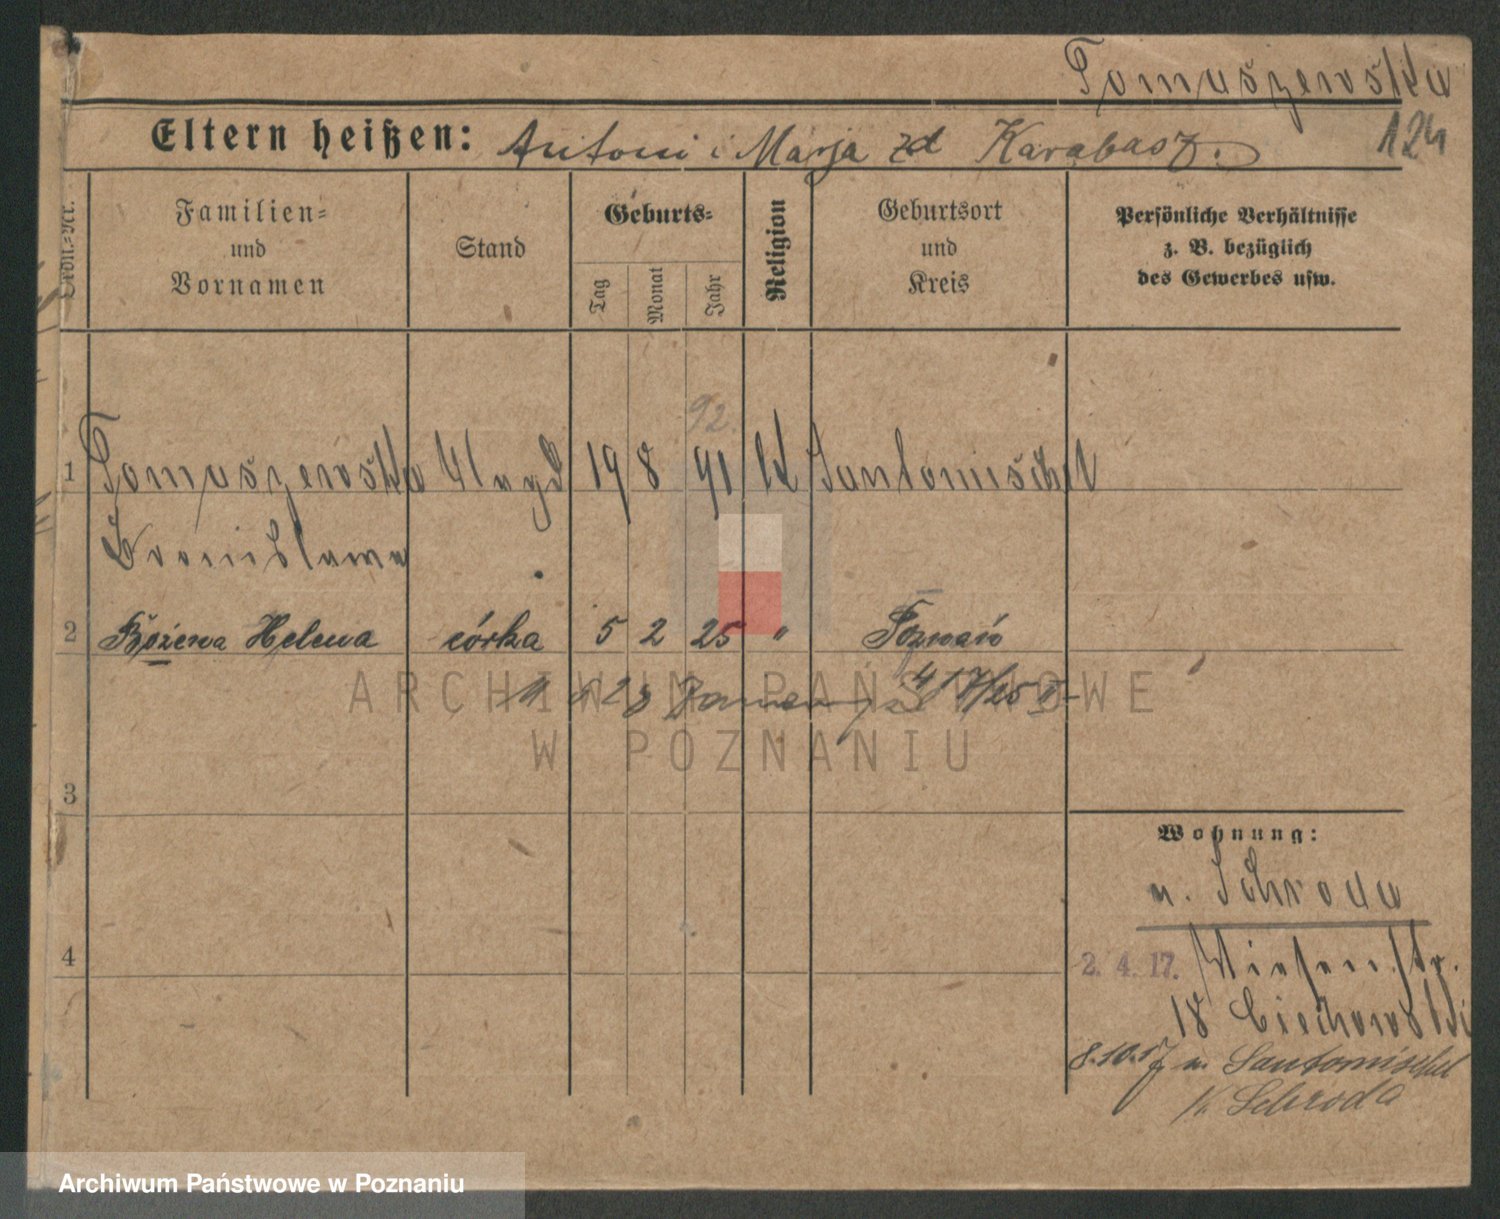 Tomaszewska
124
Eltern heißen: Antoni i Marja zd Karabasz.
Ordn.-Nr.
Familien=
und
Vornamen
Stand
Geburts=
Tag
Monat
Jahr
Religion
Geburtsort
und
Kreis
Persönliche Verhältnisse
z. B. bezüglich
des Gewerbes usw.
92.
1 Tomaszewska 19 8 91 k Santomischel
Bronislawa
2 Bożena Helena córka 5 2 25 " Poznań
ARCHIWUM PAŃSTWOWE
W POZNANIU
3
4
Wohnung:
n. Schroda
2. 4. 17. Wiesenstr.
18 Ciechowski
8.10.17 n. Santomischel
K. Schroda
Archiwum Państwowe w Poznaniu